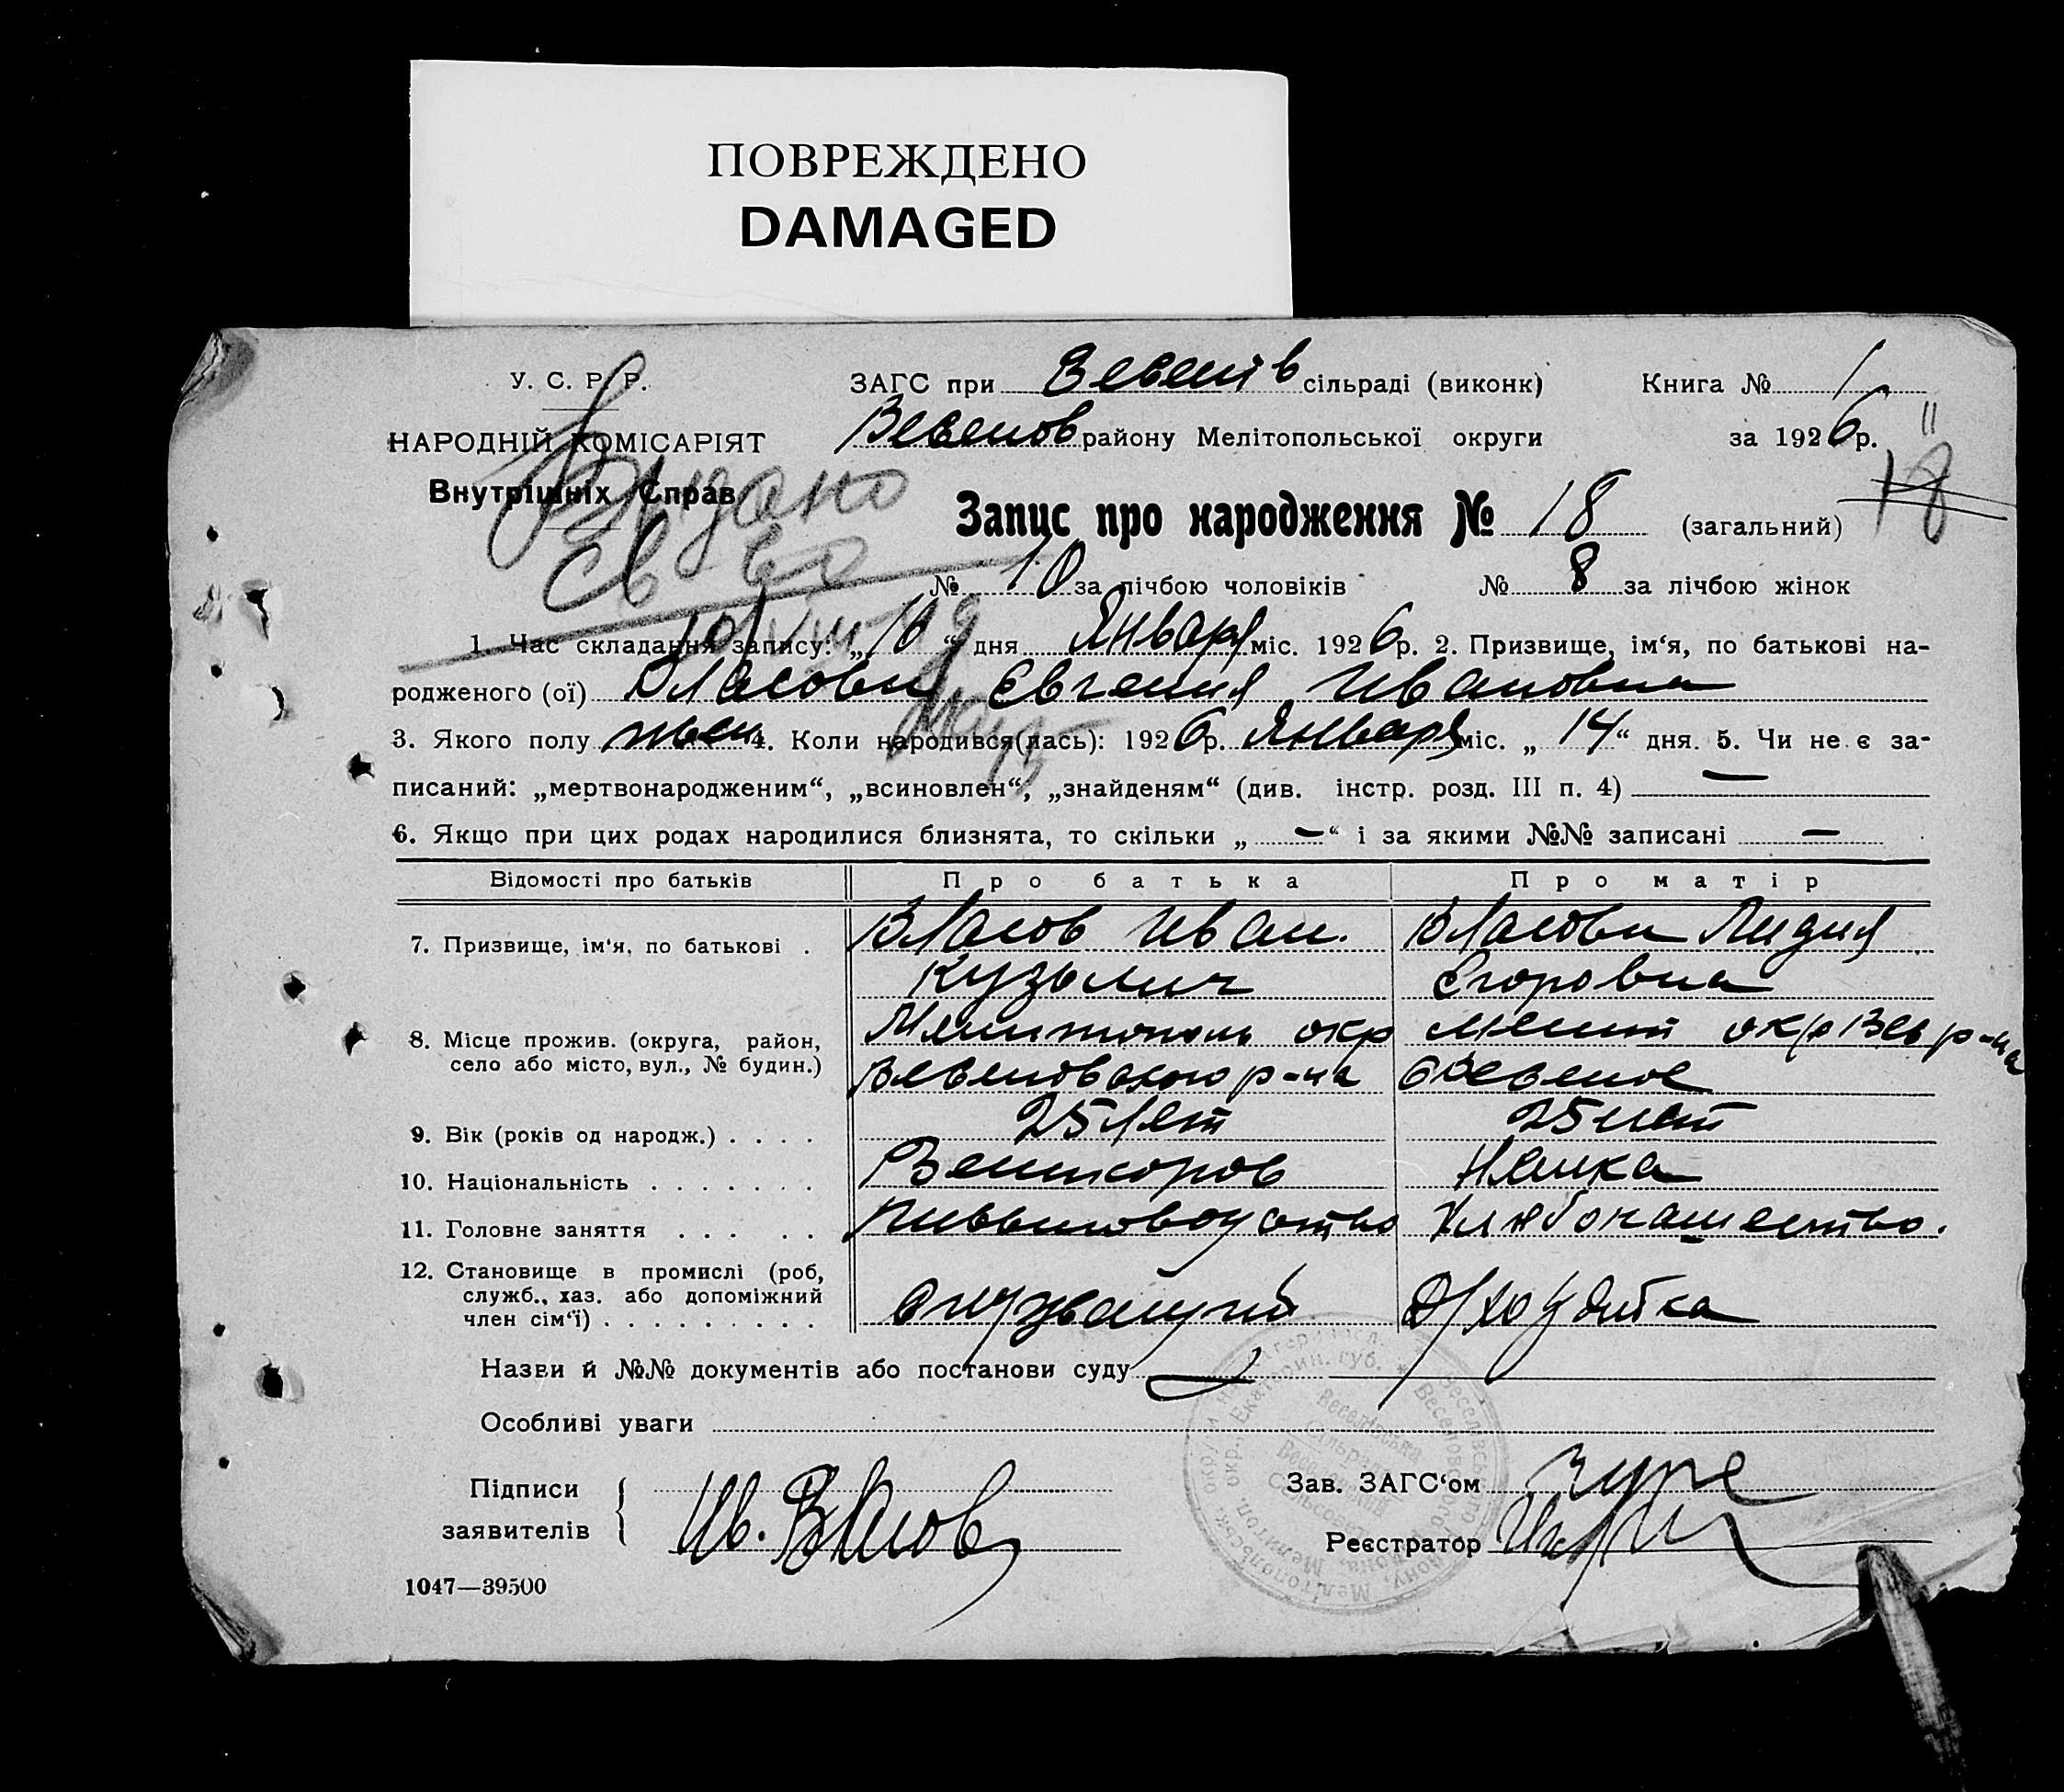 ПОВРЕЖДЕНО
DAMAGED
У. С. Р. Р.
НАРОДНІЙ КОМІСАРІЯТ
Внутрішніх Справ
Видано
св во
ЗАГС при Веселів сільраді (виконк)
Книга № 1
Веселов району Мелітопольської округи
за 1926 р.
Запис про народження № 18 (загальний)
18
№ 10 за лічбою чоловіків № 8 за лічбою жінок
1. Час складання запису: „16“ дня Января міс. 1926 р. 2. Призвище, ім‘я, по батькові на-
родженого (ої) Власова Євгения Ивановна
3. Якого полу жен 4. Коли народився(лась): 1926 р. Января міс. „14“ дня. 5. Чи не є за-
писаний: „мертвонародженим“, „всиновлен“, „знайденям“ (див. інстр. розд. III п. 4) —
6. Якщо при цих родах народилися близнята, то скільки „—“ і за якими №№ записані —
Відомості про батьків Про батька Про матір
7. Призвище, ім‘я, по батькові . Власов Иван. Власова Лидия
Кузьмич Єгоровна
8. Місце прожив. (округа, район, село або місто, вул., № будин.)
Мелитополь окр Мелит окр Вес р-на
Веселовского р-на с Веселое
9. Вік (років од народж.) . . . . 25 лет 25 лет
10. Національність . . . . . . . Великоров Немка
11. Головне заняття . . . . . Хлебопашество.
12. Становище в промислі (роб, служб., хаз. або допоміжний член сім‘ї) . . . . . . . . .
служащий Д/хозяйка
Назви й №№ документів або постанови суду —
Особливі уваги
Підписи заявителів { Ив. Власов
Зав. ЗАГС‘ом
Реєстратор
1047—39500